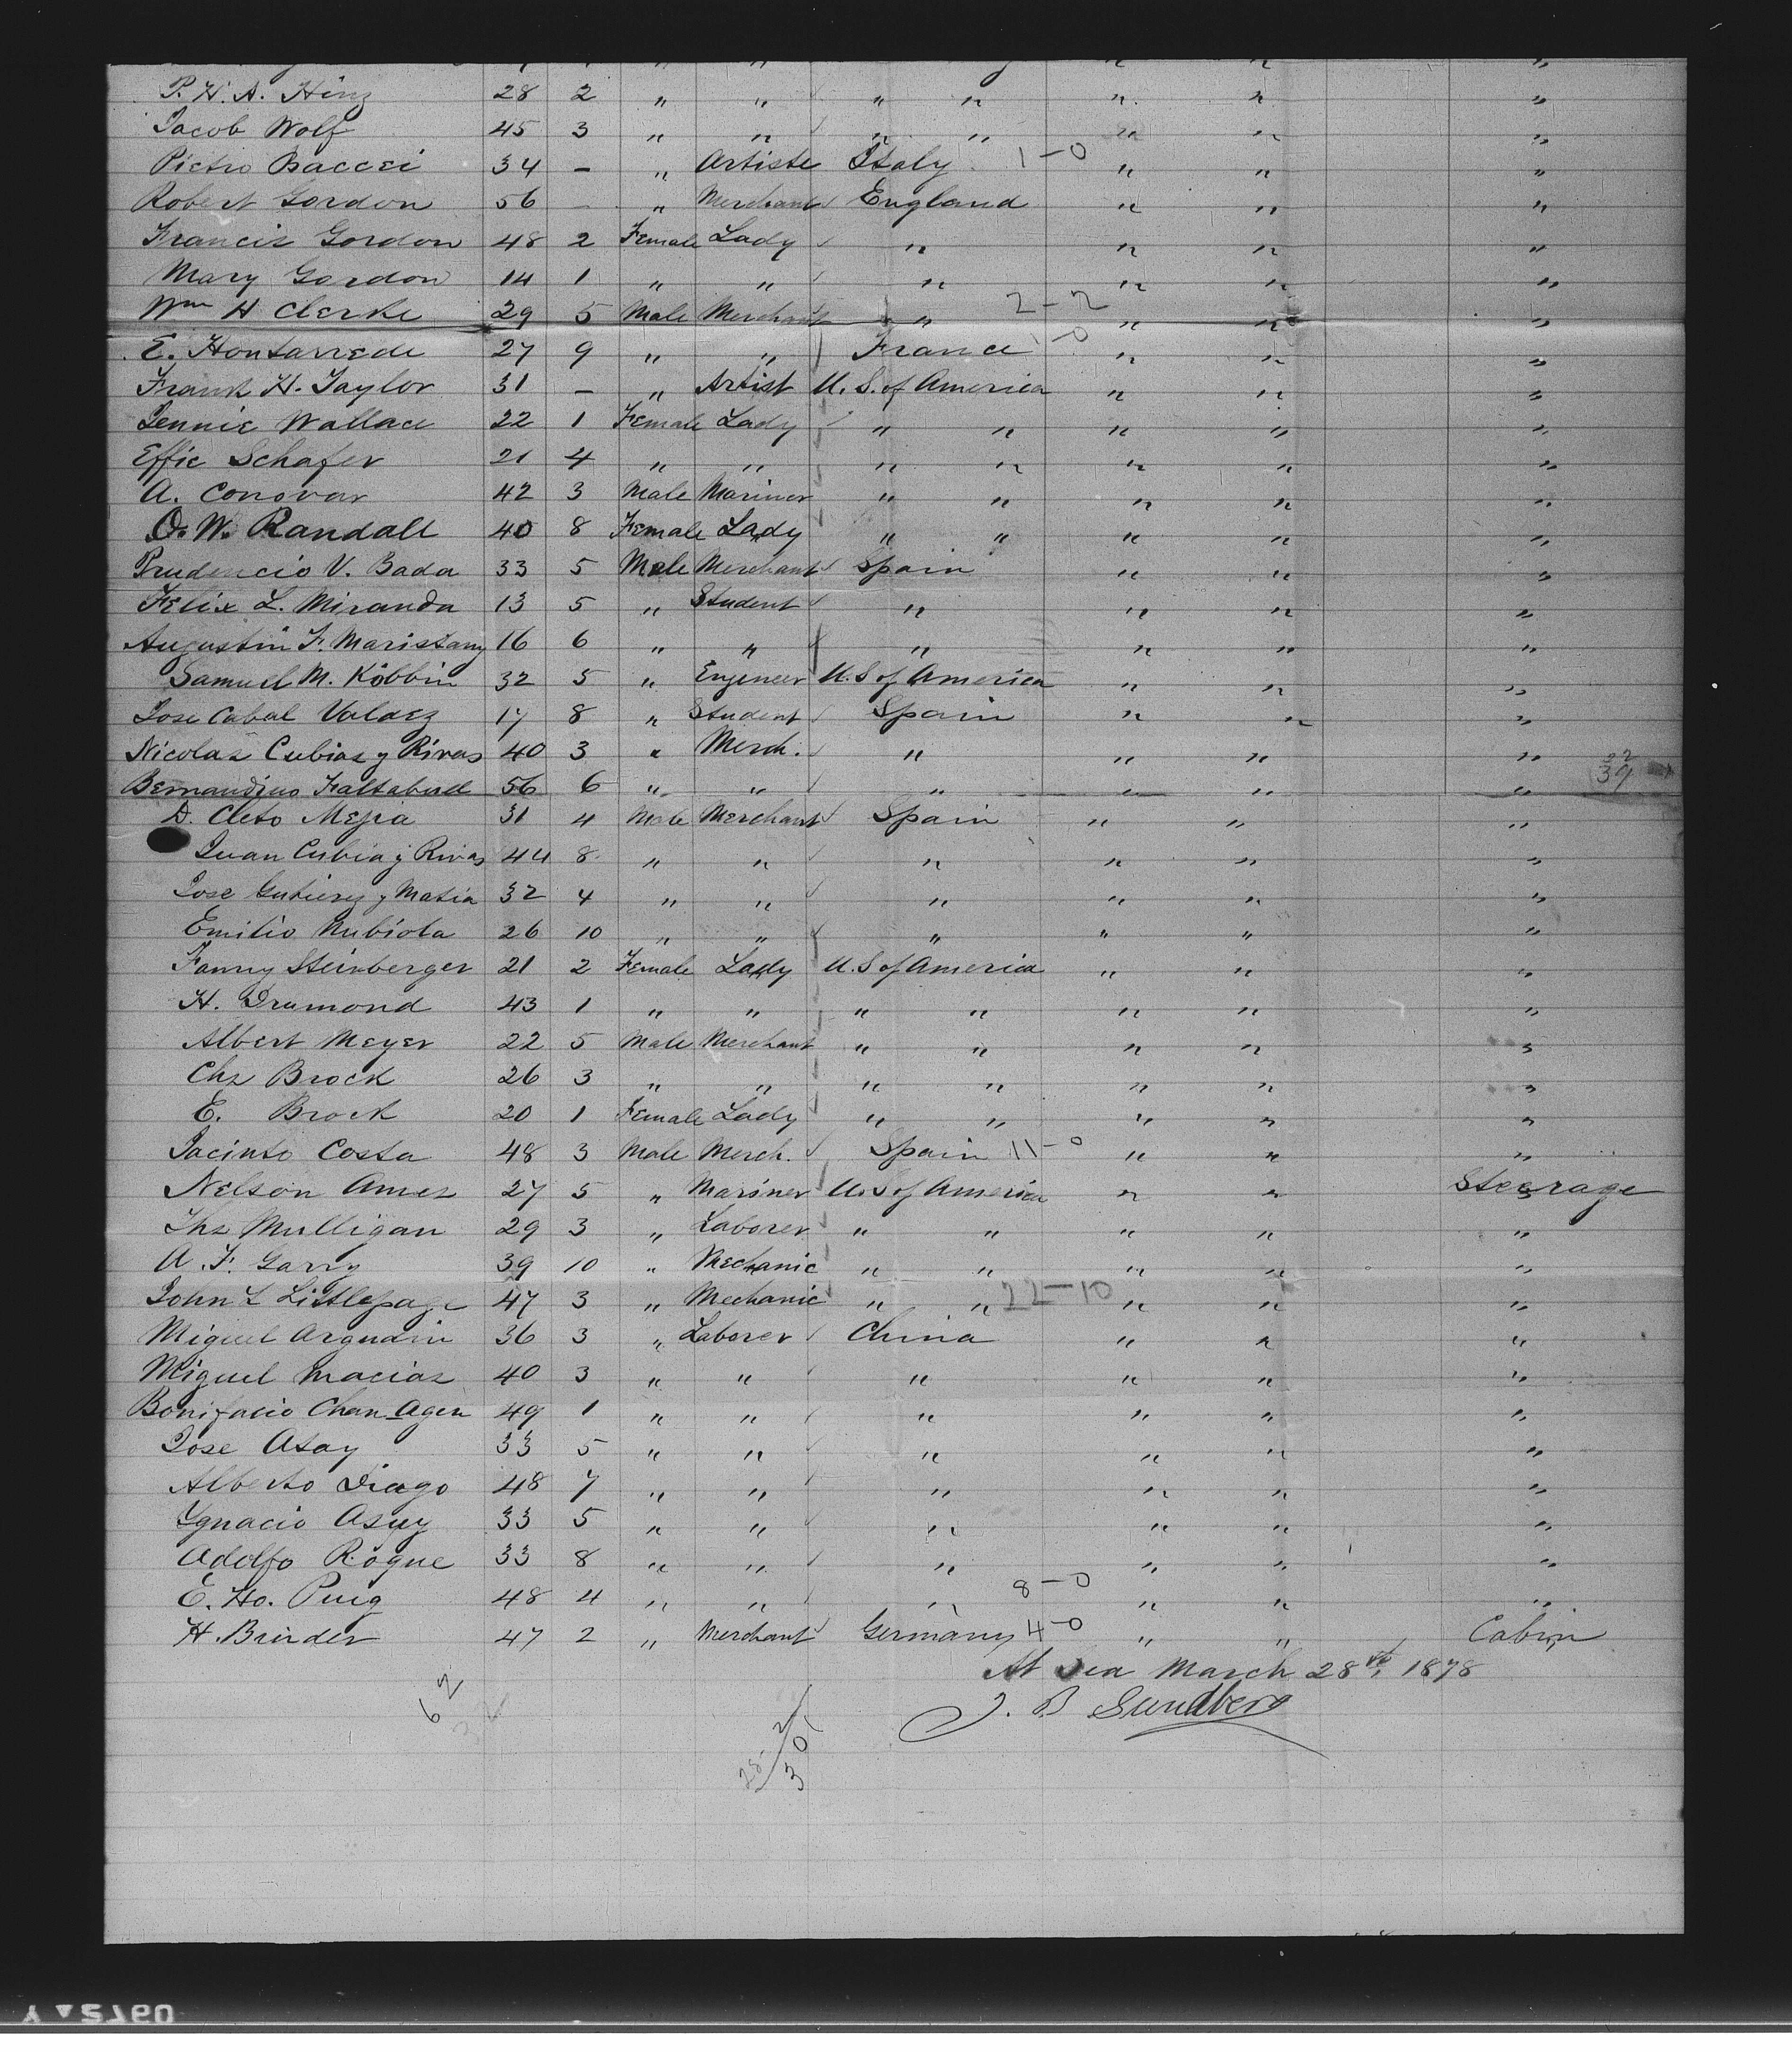 P. H. A. Hinz 28 2 " " " " " " "
Jacob Wolf 45 3 " " " " " " "
Pietro Baccei 34 – " Artiste Italy 1–0 " " "
Robert Gordon 56 – " Merchant England " " "
Francis Gordon 48 2 Female Lady " " " "
Mary Gordon 14 1 " " " " " "
Wm H Clerke 29 5 Male Merchant " 2–2 " " "
E. Hontarrede 27 9 " " France 1–0 " " "
Frank H. Taylor 31 – " Artist U. S. of America " " "
Jennie Wallace 22 1 Female Lady " " " " "
Effie Schafer 21 4 " " " " " " "
A. Conovar 42 3 Male Mariner " " " " "
O. W. Randall 40 8 Female Lady " " " " "
Prudencio V. Bada 33 5 Male Merchant Spain " " "
Felix L. Miranda 13 5 " Student " " " "
Augustin F. Maristany 16 6 " " " " " "
Samuel M. Kobbin 32 5 " Engeneer U. S of America " " "
Jose Cabal Valdez 17 8 " Student Spain " " "
Nicolas Cubias y Rivas 40 3 " Merch. " " " " 32
Bernandino Faltabull 56 6 " " " " " " 39
D. Cleto Mejia 31 4 Male Merchant Spain " " "
Juan Cubia y Rivas 44 8 " " " " " "
Jose Gutierez y Matia 32 4 " " " " " "
Emilio Nubiola 26 10 " " " " " "
Fanny Steinberger 21 2 Female Lady U. S of America " " "
H. Drumond 43 1 " " " " " " "
Albert Meyer 22 5 Male Merchant " " " " "
Chs Brock 26 3 " " " " " " "
E. Brock 20 1 Female Lady " " " " "
Jacinto Costa 48 3 Male Merch. Spain 11–0 " " "
Nelson Ames 27 5 " Mariner U. S of America " " Steerage
Ths Mulligan 29 3 " Laborer " " " " "
A. F. Garry 39 10 " Mechanic " " " " "
John L Littlepage 47 3 " Mechanic " " 22–10 " " "
Miguel Argudin 36 3 " Laborer China " " "
Miguel Macias 40 3 " " " " " "
Bonifacio Chan Agen 49 1 " " " " " "
Jose Asay 33 5 " " " " " "
Alberto Diago 48 7 " " " " " "
Ygnacio Asuy 33 5 " " " " " "
Adolfo Rogue 33 8 " " " " " "
E. Ho. Puig 48 4 " " " 8–0 " " "
H. Brinder 47 2 " Merchant Germany 4–0 " " Cabin
At Sea March 28th, 1878
J. B Sundberg
62